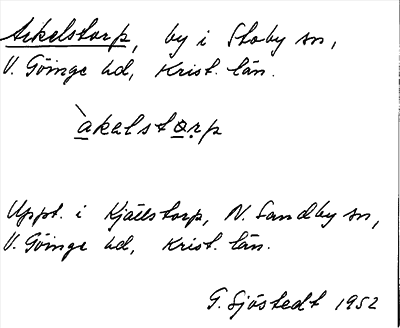 Askelstorp, by i Stoby sn,
V. Göinge hd, Krist. län.
̀akalstorp
Uppt. i Kjällstorp, N. Sandby sn,
V. Göinge hd, Krist. län.
G. Sjöstedt 1952